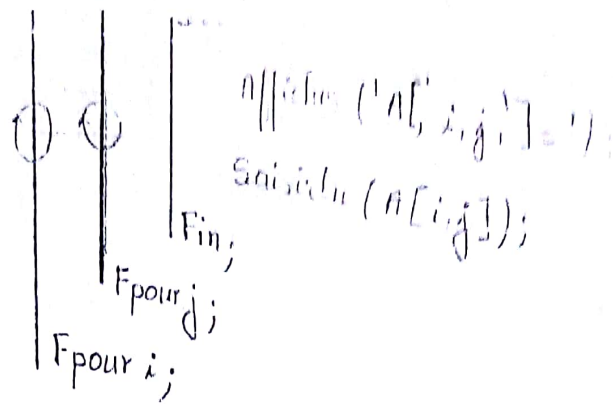 Afficher ('A[', i,j,']= ');
Saisir (A[i,j]);
Fin;
Fpour j;
Fpour i;